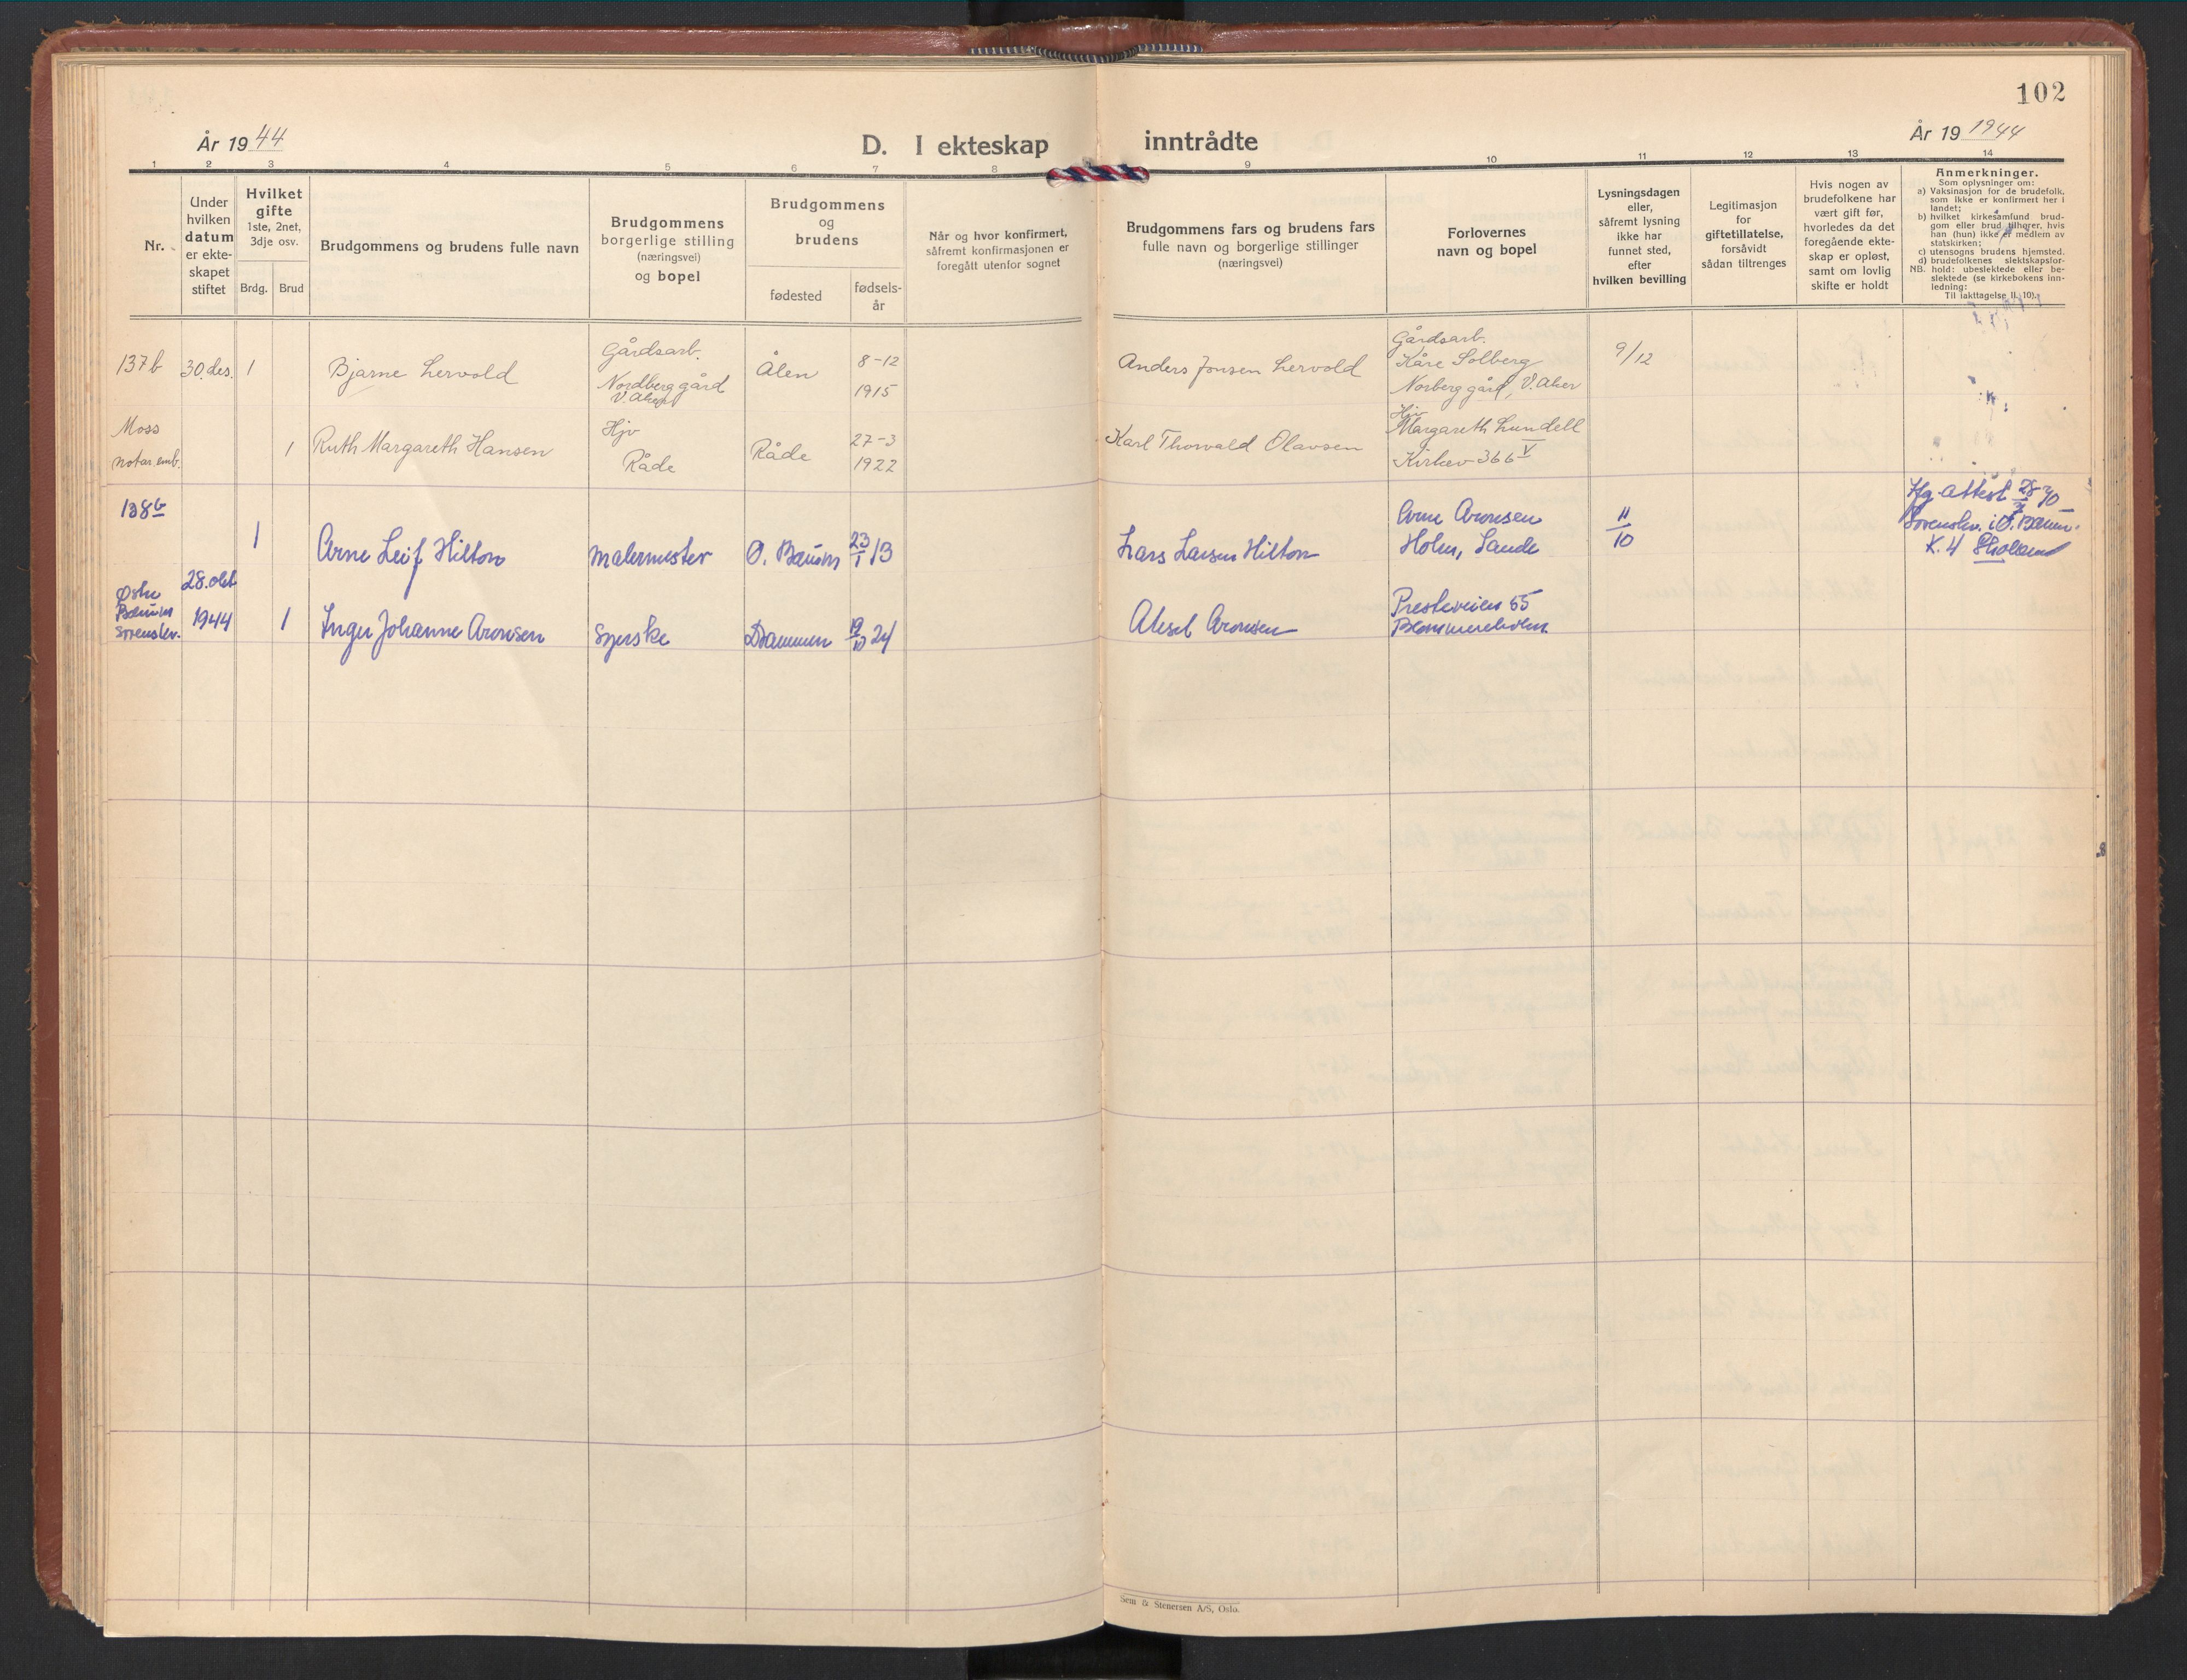 102
År 1944
D. I ekteskap inntrådte
År 19 1944
1 2 3 4 5 6 7 8 9 10 11 12 13 14
Nr.
Under
hvilken
datum
er ekte-
skapet
stiftet
Hvilket
gifte
1ste, 2net,
3dje osv.
Brdg. Brud
Brudgommens og brudens fulle navn
Brudgommens
borgerlige stilling
(næringsvei)
og bopel
Brudgommens
og
brudens
fødested
fødsels-
år
Når og hvor konfirmert,
såfremt konfirmasjonen er
foregått utenfor sognet
Brudgommens fars og brudens fars
fulle navn og borgerlige stillinger
(næringsvei)
Forlovernes
navn og bopel
Lysningsdagen
eller,
såfremt lysning
ikke har
funnet sted,
efter
hvilken bevilling
Legitimasjon
for
giftetillatelse,
forsåvidt
sådan tiltrenges
Hvis nogen av
brudefolkene har
vært gift før,
hvorledes da det
foregående ekte-
skap er opløst,
samt om lovlig
skifte er holdt
Anmerkninger.
Som oplysninger om:
a) Vaksinasjon for de brudefolk,
som ikke er konfirmert her i
landet;
b) hvilket kirkesamfund brud-
gom eller brud tilhører, hvis
han (hun) ikke er medlem av
statskirken;
c) utensogns brudens hjemsted.
d) brudefolkenes slektskapsfor-
NB. hold: ubeslektede eller be-
slektede (se kirkebokens inn-
ledning:
Til iakttagelse II, 10).
137b 30. des. 1 Bjarne Lervold
Gårdsarb.
Nordberg gård
V. Aker
Ålen
8-12
1915
Anders Jonsen Lervold
Gårdsarb.
Kåre Solberg
Norberg gård, V. Aker
9/12
Moss
notar.emb.
1 Ruth Margareth Hansen
Hjv
Råde
Råde
27-3
1922
Karl Thorvald Olavsen
Hjv
Margareth Lundell
Kirkev 366 V
138b
1 Arne Leif Hilton malermester Ø. Bærum 23/1 13
Lars Larsen Hilton
Arne Aronsen
Holm, Sande
11/10
attest 28
Sorenskr. i Ø. Bærum.
K. 4
Østre
Bærum
sorenskr.
28. okt
1944
1 Inger Johanne Aronsen syerske Drammen 19/10 24
Aksel Aronsen
Presteveien 55
Blommenholm
Sem & Stenersen A/S, Oslo.